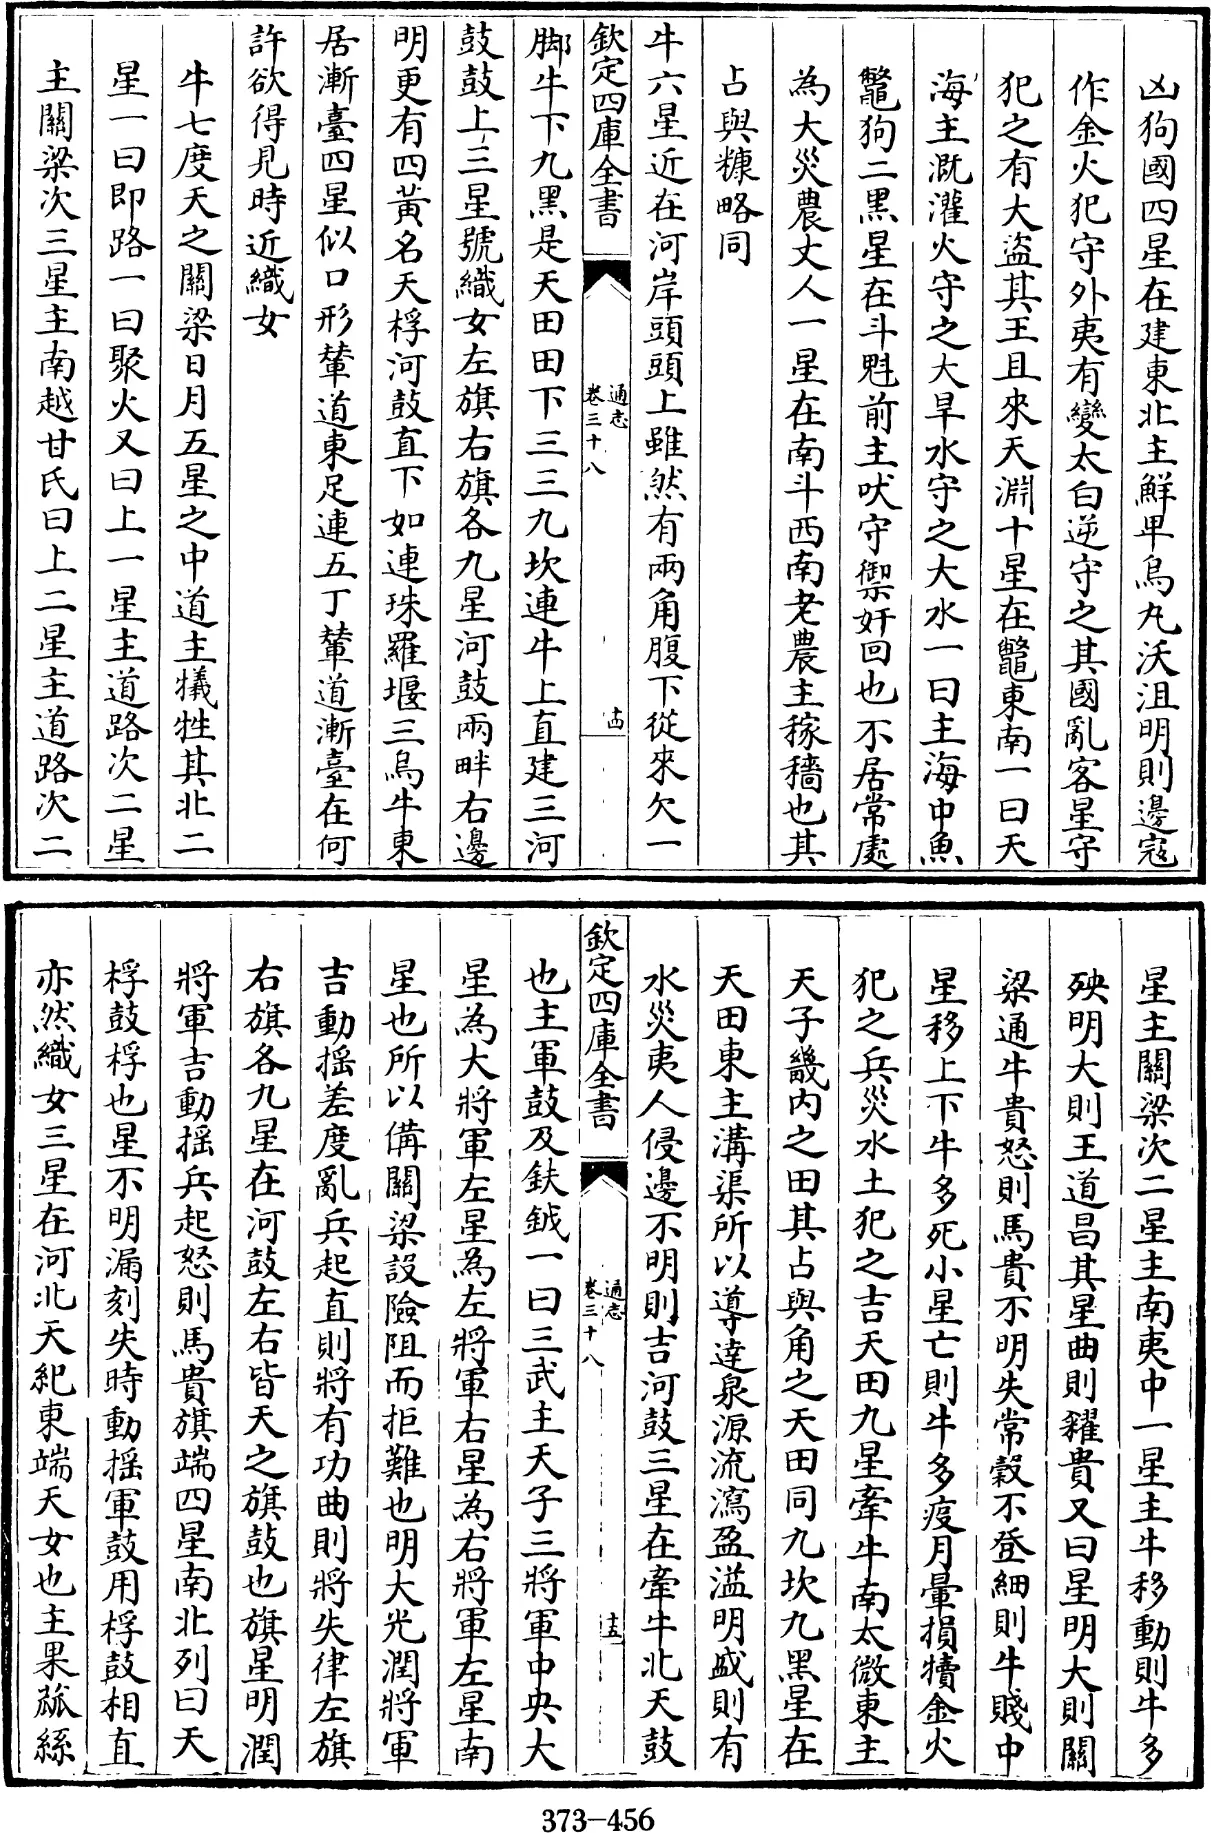 凶狗國四星在建東北主鮮卑烏丸沃沮明則邊寇
作金火犯守外夷有變太白逆守之其國亂客星守
犯之有大盜其王且來天淵十星在鼈東南一曰天
海主溉灌火守之大旱水守之大水一曰主海中魚
鼈狗二黑星在斗魁前主吠守禦奸回也不居常處
為大災農丈人一星在南斗西南老農主稼穡也其
占與糠略同
牛六星近在河岸頭頭上雖然有兩角腹下從來欠一
欽定四庫全書
通志
卷三十八
十四
脚牛下九黑是天田田下三三九坎連牛上直建三河
鼓鼓上三星號織女左旗右旗各九星河鼓兩畔右邊
明更有四黃名天桴河鼓直下如連珠羅堰三烏牛東
居漸臺四星似口形輦道東足連五丁輦道漸臺在何
許欲得見時近織女
牛七度天之關梁日月五星之中道主犧牲其北二
星一曰即路一曰聚火又曰上一星主道路次二星
主關梁次三星主南越甘氏曰上二星主道路次二
星主關梁次二星主南夷中一星主牛移動則牛多
殃明大則王道昌其星曲則糴貴又曰星明大則關
梁通牛貴怒則馬貴不明失常穀不登細則牛賤中
星移上下牛多死小星亡則牛多疫月暈損犢金火
犯之兵災水土犯之吉天田九星牽牛南太微東主
天子畿内之田其占與角之天田同九坎九黑星在
天田東主溝渠所以導達泉源流瀉盈溢明盛則有
水災夷人侵邊不明則吉河鼓三星在牽牛北天鼓
欽定四庫全書
通志
卷三十八
十五
也主軍鼓及鈇鉞一曰三武主天子三將軍中央大
星為大將軍左星為左將軍右星為右將軍左星南
星也所以備關梁設險阻而拒難也明大光潤將軍
吉動搖差度亂兵起直則將有功曲則將失律左旗
右旗各九星在河鼓左右皆天之旗鼓也旗星明潤
將軍吉動搖兵起怒則馬貴旗端四星南北列曰天
桴鼓桴也星不明漏刻失時動搖軍鼓用桴鼓相直
亦然織女三星在河北天紀東端天女也主果蓏絲
373-456